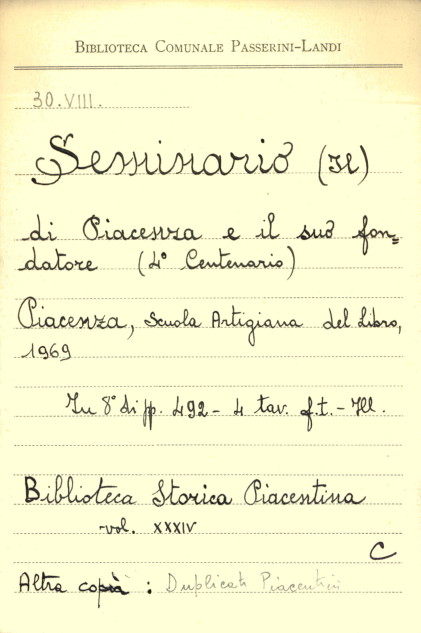 BIBLIOTECA COMUNALE PASSERINI-LANDI
30.VIII.
Seminario (Il)
di Piacenza e il suo fon=
datore (4° Centenario)
Piacenza, Scuola Artigiana del Libro,
1969
In 8° di pp. 492 - 4 tav. f.t. - Ill.
Biblioteca Storica Piacentina
vol. XXXIV
C
Altra copia : Duplicati Piacentini